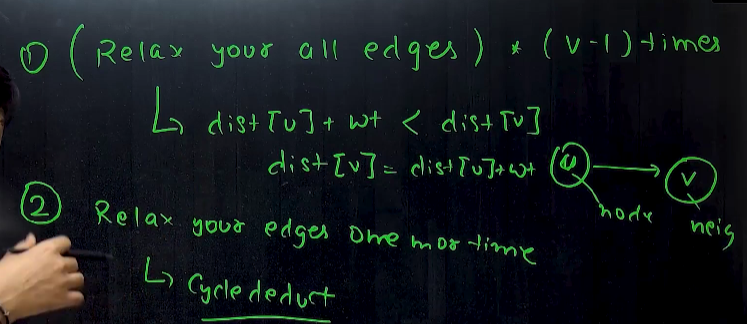 ① (Relax your all edges) * (V-1) times
↳ dist[u] + wt < dist[v]
dist[v] = dist[u]+wt
u → v
node neig
② Relax your edges one mor time
↳ Cycle deduct